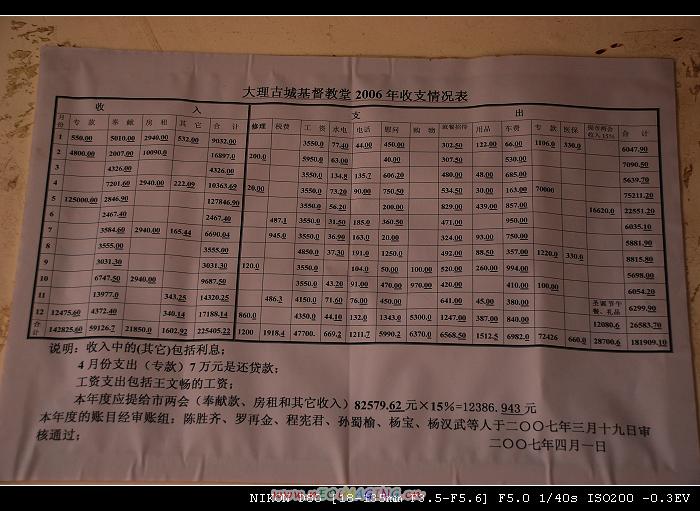 大理古城基督教堂 2006 年收支情况表
收 入 支 出
月份 专款 奉献 房租 其它 合计 修理 税费 工资 水电 电话 慰问 购物 用品 车费 专款 医保 合计
1 550.00 5010.00 2940.00 532.00 9032.00 3550.0 77.40 44.00 450.00 302.50 122.00 66.00 1106.0 330.0 6047.90
2 4800.00 2007.00 10090.0 16897.0 200.0 5950.0 63.00 40.00 307.50 530.00 7090.50
3 4326.00 4326.00 3550.0 134.8 135.7 606.20 480.00 48.00 685.00 5639.70
4 7201.60 2940.00 222.09 10363.69 20.00 3550.0 73.20 90.00 750.50 534.50 30.00 163.00 70000 75211.20
5 125000.00 2846.90 127846.90 3550.0 56.20 200.00 829.00 439.00 857.00 16620.0 22551.20
6 2467.40 2467.40 487.1 3550.0 31.50 185.0 360.50 471.00 950.00 6035.10
7 3584.60 2940.00 165.44 6690.04 945.0 3550.0 36.90 163.0 20.00 324.00 93.00 750.00 5881.90
8 3555.00 3555.00 4850.0 37.30 191.0 1250.0 492.00 88.50 357.00 1220.0 330.0 8815.80
9 3031.30 3031.30 120.0 3550.0 104.0 50.00 100.00 520.00 260.00 994.00 5698.00
10 6747.50 2940.00 9687.50 3550.0 43.20 91.00 470.00 970.00 420.00 410.00 100.00 6054.20
11 13977.0 343.25 14320.25 486.3 4150.0 71.60 76.00 450.00 641.00 45.00 380.00 圣诞节午餐、礼品 6299.90
12 12475.60 4372.40 340.14 17188.14 860.0 4350.0 44.10 132.0 1343.0 5300.0 1247.00 387.00 840.00 12080.6 26583.70
合计 142825.60 59126.7 21850.0 1602.92 225405.22 1200 1918.4 47700. 669.2 1211.7 5990.2 6370.0 6568.50 1512.5 6982.0 72426 660.0 28700.6 181909.10
说明：收入中的(其它)包括利息；
4 月份支出（专款）7 万元是还贷款；
工资支出包括王文畅的工资；
本年度应提给市两会（奉献款、房租和其它收入）82579.62 元×15%=12386.943 元
本年度的账目经审账组：陈胜齐、罗再金、程宪君、孙蜀榆、杨宝、杨汉武等人于二〇〇七年三月十九日审
核通过；
二〇〇七年四月一日
NIKON D80 [18-135mm F3.5-F5.6] F5.0 1/40s ISO200 -0.3EV